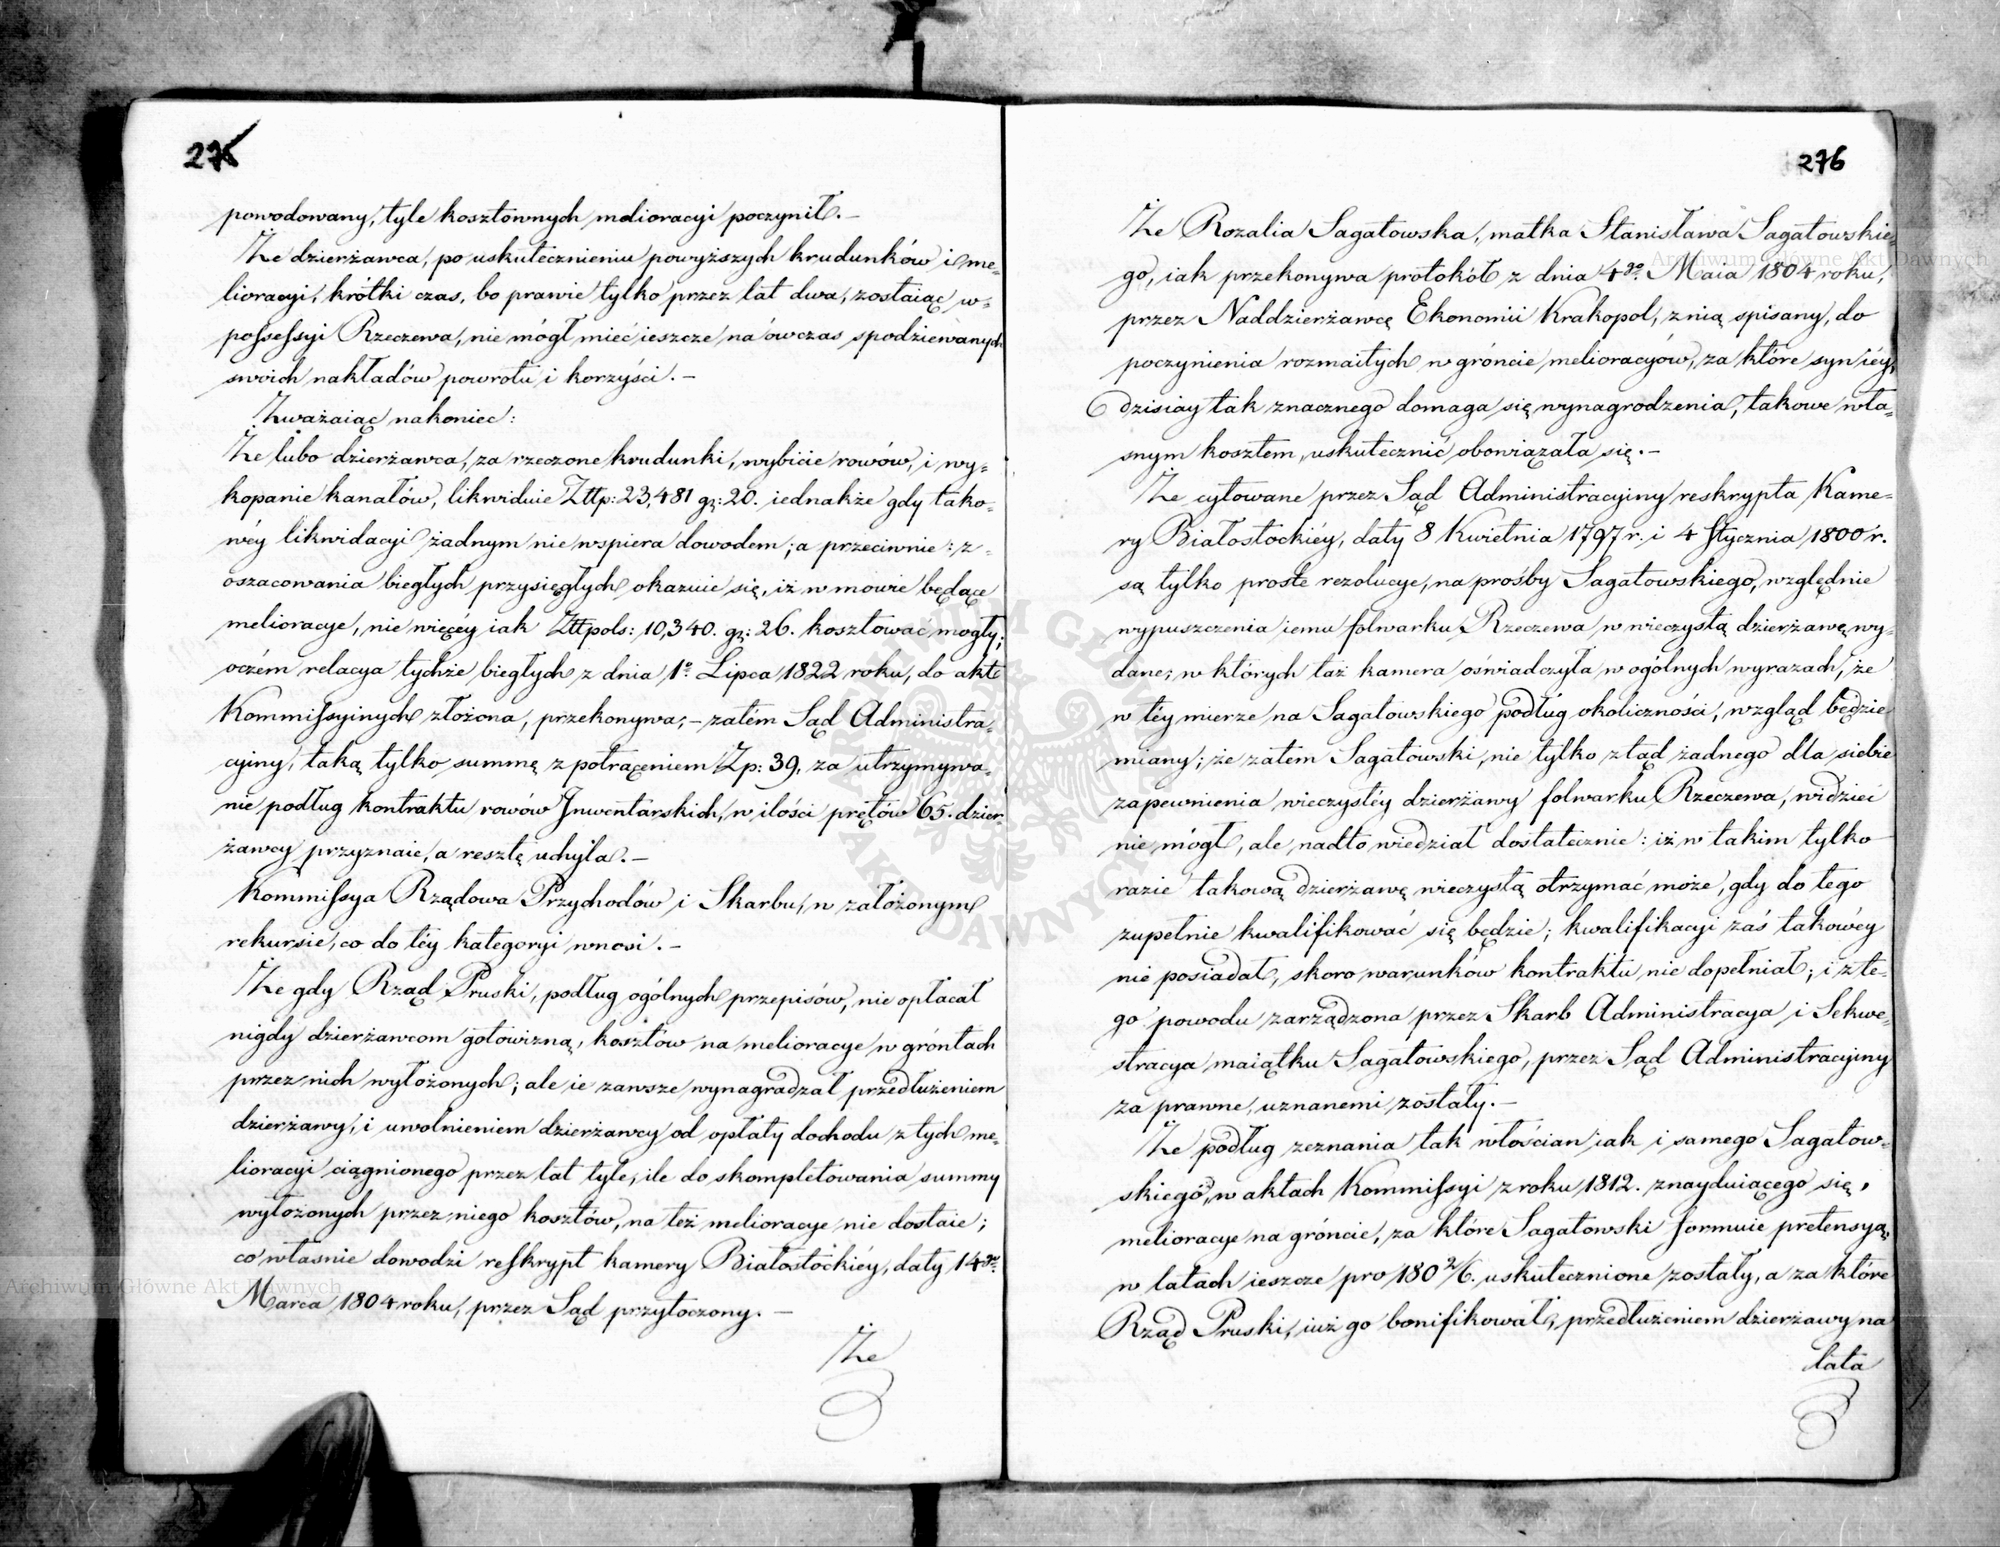 275
powodowany, tyle kosztownych melioracyi poczynił.-
Że dzierżawca, po uskutecznieniu powyższych krudunków i me-
lioracyi, krótki czas, bo prawie tylko przez lat dwa, zostaiąc w-
possessyi Rzeczewa, nie mógł mieć ieszcze na ówczas spodziewanych
swoich nakładów powrotu i korzyści.-
Zważaiąc nakoniec:
Że lubo dzierżawca, za rzeczone krudunki, wybicie rowów, i wy-
kopanie kanałów, likwiduie Złłp: 23,481 gr: 20. iednakże gdy tako-
wéy likwidacyi żadnym nie wspiera dowodem; a przeciwnie: z-
oszacowania biegłych przysięgłych okazuie się, iż w mowie będące
melioracye, nie więcéy iak Złłpols: 10,340. gr: 26. kosztować mogły;
oczém relacya tychże biegłych z dnia 1o Lipca 1822 roku, do akt
Kommissyinych złożona, przekonywa;- zatém Sąd Administra-
cyiny, taką tylko summę z potrąceniem Zp: 39, za utrzymywa-
nie podług kontraktu rowów Inwentarskich, w ilości prętów 65. dzier-
żawcy przyznaie, a resztę uchyla.-
Kommissya Rządowa Przychodów i Skarbu, w założonym
rekursie, co do téy kategoryi wnosi.-
Że gdy Rząd Pruski, podług ogólnych przepisów, nie opłacał
nigdy dzierżawcom gotowizną, kosztów na melioracye w gróntach
przez nich wyłożonych; ale ie zawsze wynagradzał przedłużeniem
dzierżawy, i uwolnieniem dzierżawcy od opłaty dochodu z tych me-
lioracyi ciągnionego przez lat tyle, ile do skompletowania summy
wyłożonych przez niego kosztów, na też melioracye nie dostaie;
co własnie dowodzi reskrypt kamery Białostockiéy, daty 14go
Marca 1804 roku, przez Sąd przytoczony.-
Że
276
Że Rozalia Sagatowska, matka Stanisława Sagatowskie-
go, iak przekonywa protokół z dnia 4go Maia 1804 roku,
przez Naddzierżawcę Ekonomii Krakopol, z nią spisany, do
poczynienia rozmaitych w gróncie melioracyów, za które syn iéy,
dzisiay tak znacznego domaga się wynagrodzenia, takowe wła-
snym kosztem, uskutecznić obowiązała się.-
Że cytowane przez Sąd Administracyiny reskrypta Kame-
ry Białostockiéy, daty 8 Kwietnia 1797 r. i 4 Stycznia 1800 r.
są tylko proste rezolucye, na prośby Sagatowskiego, względnie
wypuszczenia iemu folwarku Rzeczewa w wieczystą dzierżawę wy-
dane; w których taż kamera oświadczyła w ogólnych wyrazach, że
w téy mierze na Sagatowskiego podług okoliczności, wzgląd będzie
miany; że zatem Sagatowski, nie tylko ztąd żadnego dla siebie
zapewnienia wieczystéy dzierżawy folwarku Rzeczewa, widzieć
nie mógł, ale nadto wiedział dostatecznie: iż w takim tylko
razie takową dzierżawę wieczystą otrzymać może, gdy do tego
zupełnie kwalifikować się będzie; kwalifikacyi zaś takowéy
nie posiadał, skoro warunków kontraktu nie dopełniał; i z te-
go powodu zarządzona przez Skarb Administracya i Sekwe-
stracya maiątku Sagatowskiego, przez Sąd Administracyiny
za prawne, uznanemi zostały.-
Że podług zeznania tak włościan iak i samego Sagatow-
skiego, w aktach Kommissyi z roku 1812. znayduiącego się,
melioracye na gróncie, za które Sagatowski formuie pretensyą,
w latach ieszcze pro 180 2/6. uskutecznione zostały, a za które
Rząd Pruski, iuż go bonifikował, przedłużeniem dzierżawy na
lata
Archiwum Główne Akt Dawnych
Archiwum Główne Akt Dawnych
ARCHIWUM GŁÓWNE AKT DAWNYCH